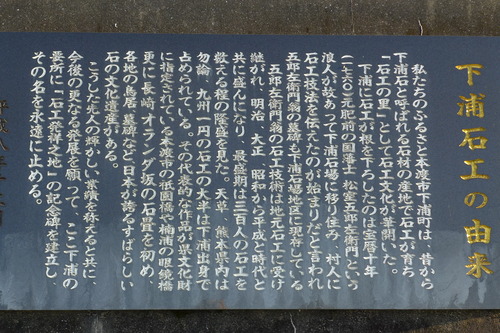 下浦石工の由来
私たちのふるさと本渡市下浦町は、昔から
下浦石と呼ばれる石材の産地で石工が育ち
「石工の里」として石工文化が華開いた。
下浦に石工が根を下ろしたのは宝暦十年
(一七六〇)元肥前の国藩士 松室五郎左衛門という
浪人が故あって下浦石場に移り住み、村人に
石工技法を伝えたのが始まりだと言われ
五郎左衛門翁の墓碑も下浦石場地区に現存している
五郎左衛門翁の石工技術は地元の石工に受け
継がれ、明治 大正 昭和から平成と時代と
共に盛んになり、最盛期は三百人の石工を
数える程の隆盛を見た。天草、熊本県内は
勿論、九州一円の石工の大半は下浦出身で
占められている。その代表的な作品が県文化財
に指定されている本渡市の祇園橋や楠浦の眼鏡橋
更に長崎オランダ坂の石畳を初め、
各地の鳥居、墓碑など、日本が誇るすばらしい
石の文化遺産がある。
こうした先人の輝かしい業績を称えると共に、
今後の更なる発展を願って、ここ下浦の
要所に「石工発祥之地」の記念碑を建立し、
その名を永遠に止める。